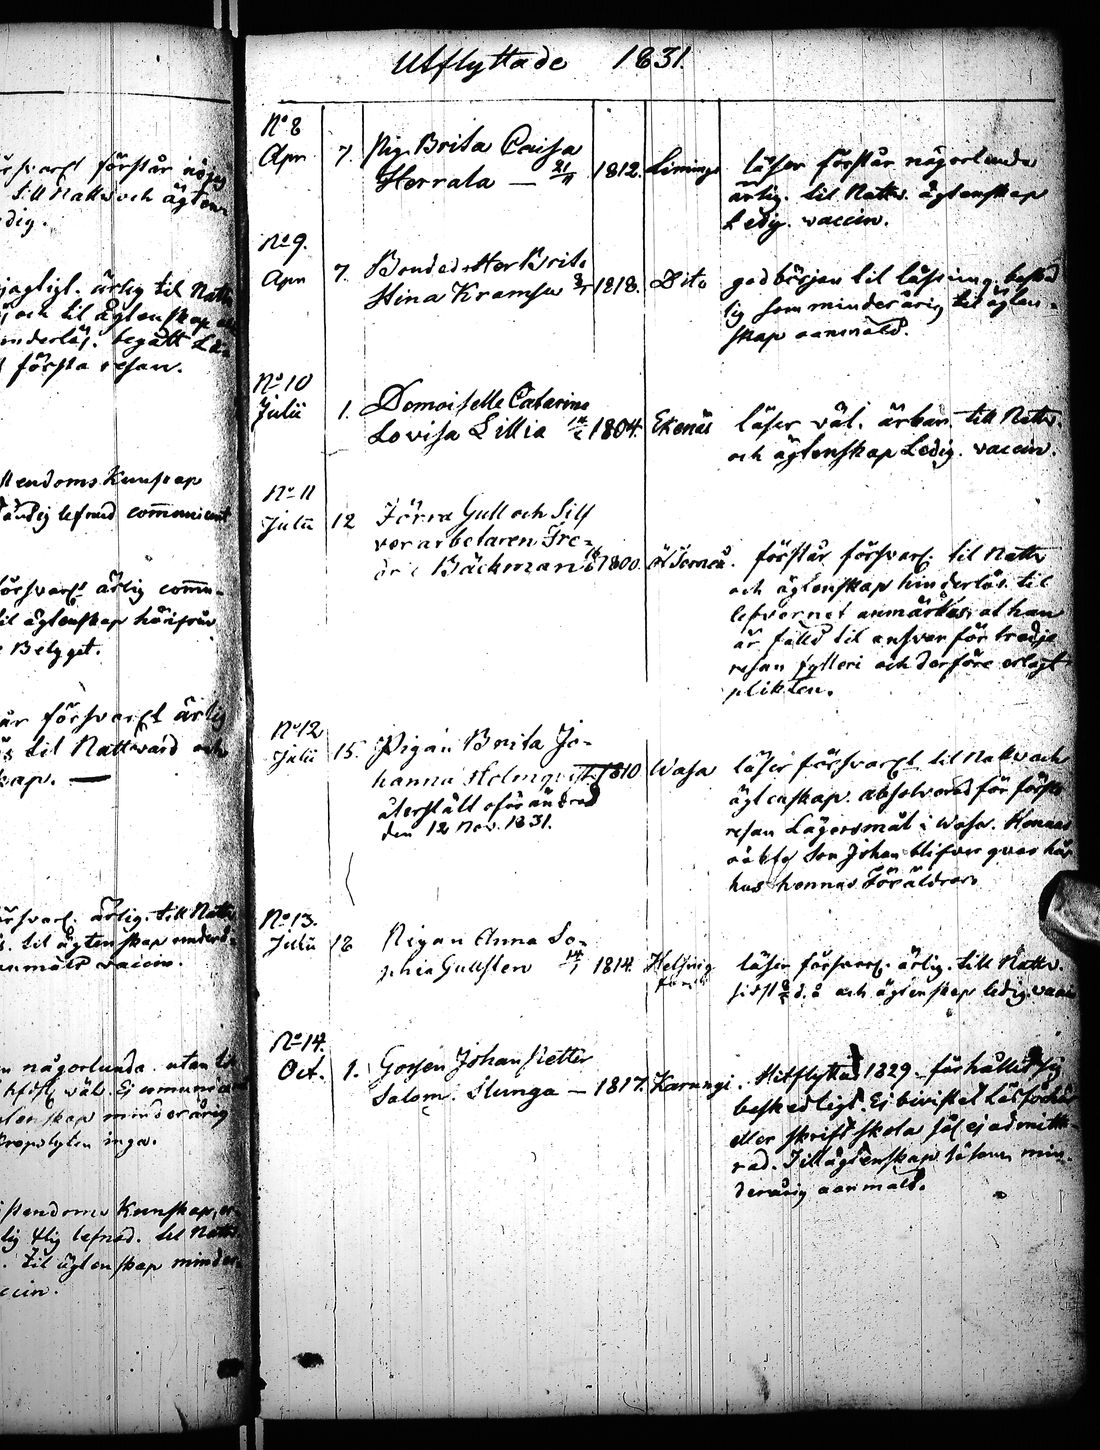 Utflyttade 1831.
försvarl förstår nöjag
till Nattv och ägten-
ledig.
ärlig til Nattv
och til ägtenskap
hinderlös. begått
första resan.
Christendoms Kunskap
lefnad communicant
försvarl. ärlig comm-
til ägtenskap
Betyget.
försvarl ärlig
til Nattvard och
skap. —
försvarl. ärlig. till Nattv
til ägtenskap
anmäld vaccin.
någorlunda utan
väl. Ej
ägtenskap minderårig
inga.
Kunskap,
lefnad. til Nattv
til ägtenskap minder-
vaccin.
No 8
Apr 7. Pig. Brita Caisa
Herrala — 21/11 1812. Limingo läser förstår någorlunda
ärlig. til Nattv. ägtenskap
Ledig. vaccin.
No 9.
Apr 7. Bondedotter Brita
Stina Kramsu 1818. Dito god början til läsning, besked
lig som minderårig til ägten-
skap oanmäld.
No 10
Julii 1. Domoiselle Catarina
Lovisa Lillia 1804. Ekenäs läser väl. ärbar. till Nattv.
och ägtenskap Ledig. vaccin.
No 11
Julii 12 Förra Gull och Silf
verarbetaren Fre-
dric Bäckman 1800. Öf Torneå. förstår försvarl. til Nattv
och ägtenskap hinderlös. til
lefvernet anmärkes, at han
är fälld til ansvar för tredje
resan fylleri och derföre erlagt
plikten.
No 12
Julii 15. Pigan Brita Jo-
hanna Holmqvist. 1810 Wasa läser försvarl. til Nattv och
återställt oförändrad ägtenskap. absolverad för första
den 12 Nov. 1831. resan Lägersmål i Wasa. Hennes
oäkta Son Johan blifver qvar här
hos hennes Föräldrar.
No 13.
Julii 18 Pigan Anna So-
phia Gullsten 14/1 1814. Helsing läser försvarl. ärlig. till Nattv.
fors sidst d. å och ägtenskap ledig. vaccin
No 14.
Oct. 1. Gossen Johan Petter
Salom. Slunga — 1817. Karungi. Hitflyttad 1829. förhållit sig
beskedligt. Ej bivistat Läsförhör
eller skriftskola så ej admitte-
rad. Till ägtenskap såsom min-
derårig oanmäld.